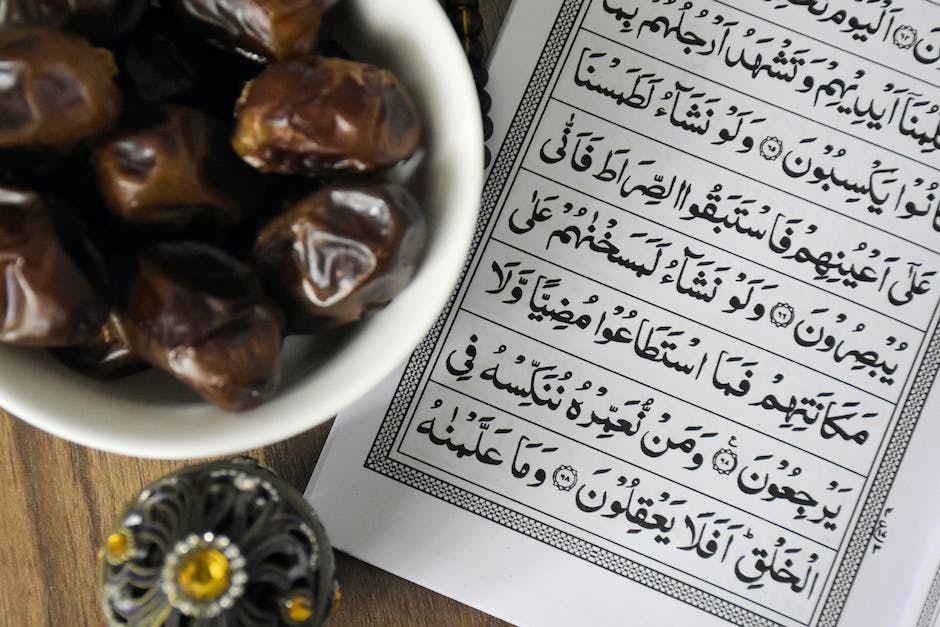 اَلْيَوْمَ
اَيْدِيْهِمْ وَتَشْهَدُ اَرْجُلُهُمْ بِمَا
كَانُوْا يَكْسِبُوْنَ ﴿٦٥﴾ وَلَوْ نَشَآءُ لَطَمَسْنَا
عَلٰٓى اَعْيُنِهِمْ فَاسْتَبَقُوا الصِّرَاطَ فَاَنّٰى
يُبْصِرُوْنَ ﴿٦٦﴾ وَلَوْ نَشَآءُ لَمَسَخْنٰهُمْ عَلٰى
مَكَانَتِهِمْ فَمَا اسْتَطَاعُوْا مُضِيًّا وَّلَا
يَرْجِعُوْنَ ﴿٦٧﴾ وَمَنْ نُّعَمِّرْهُ نُنَكِّسْهُ فِي
الْخَلْقِؕ اَفَلَا يَعْقِلُوْنَ ﴿٦٨﴾ وَمَا عَلَّمْنٰهُ